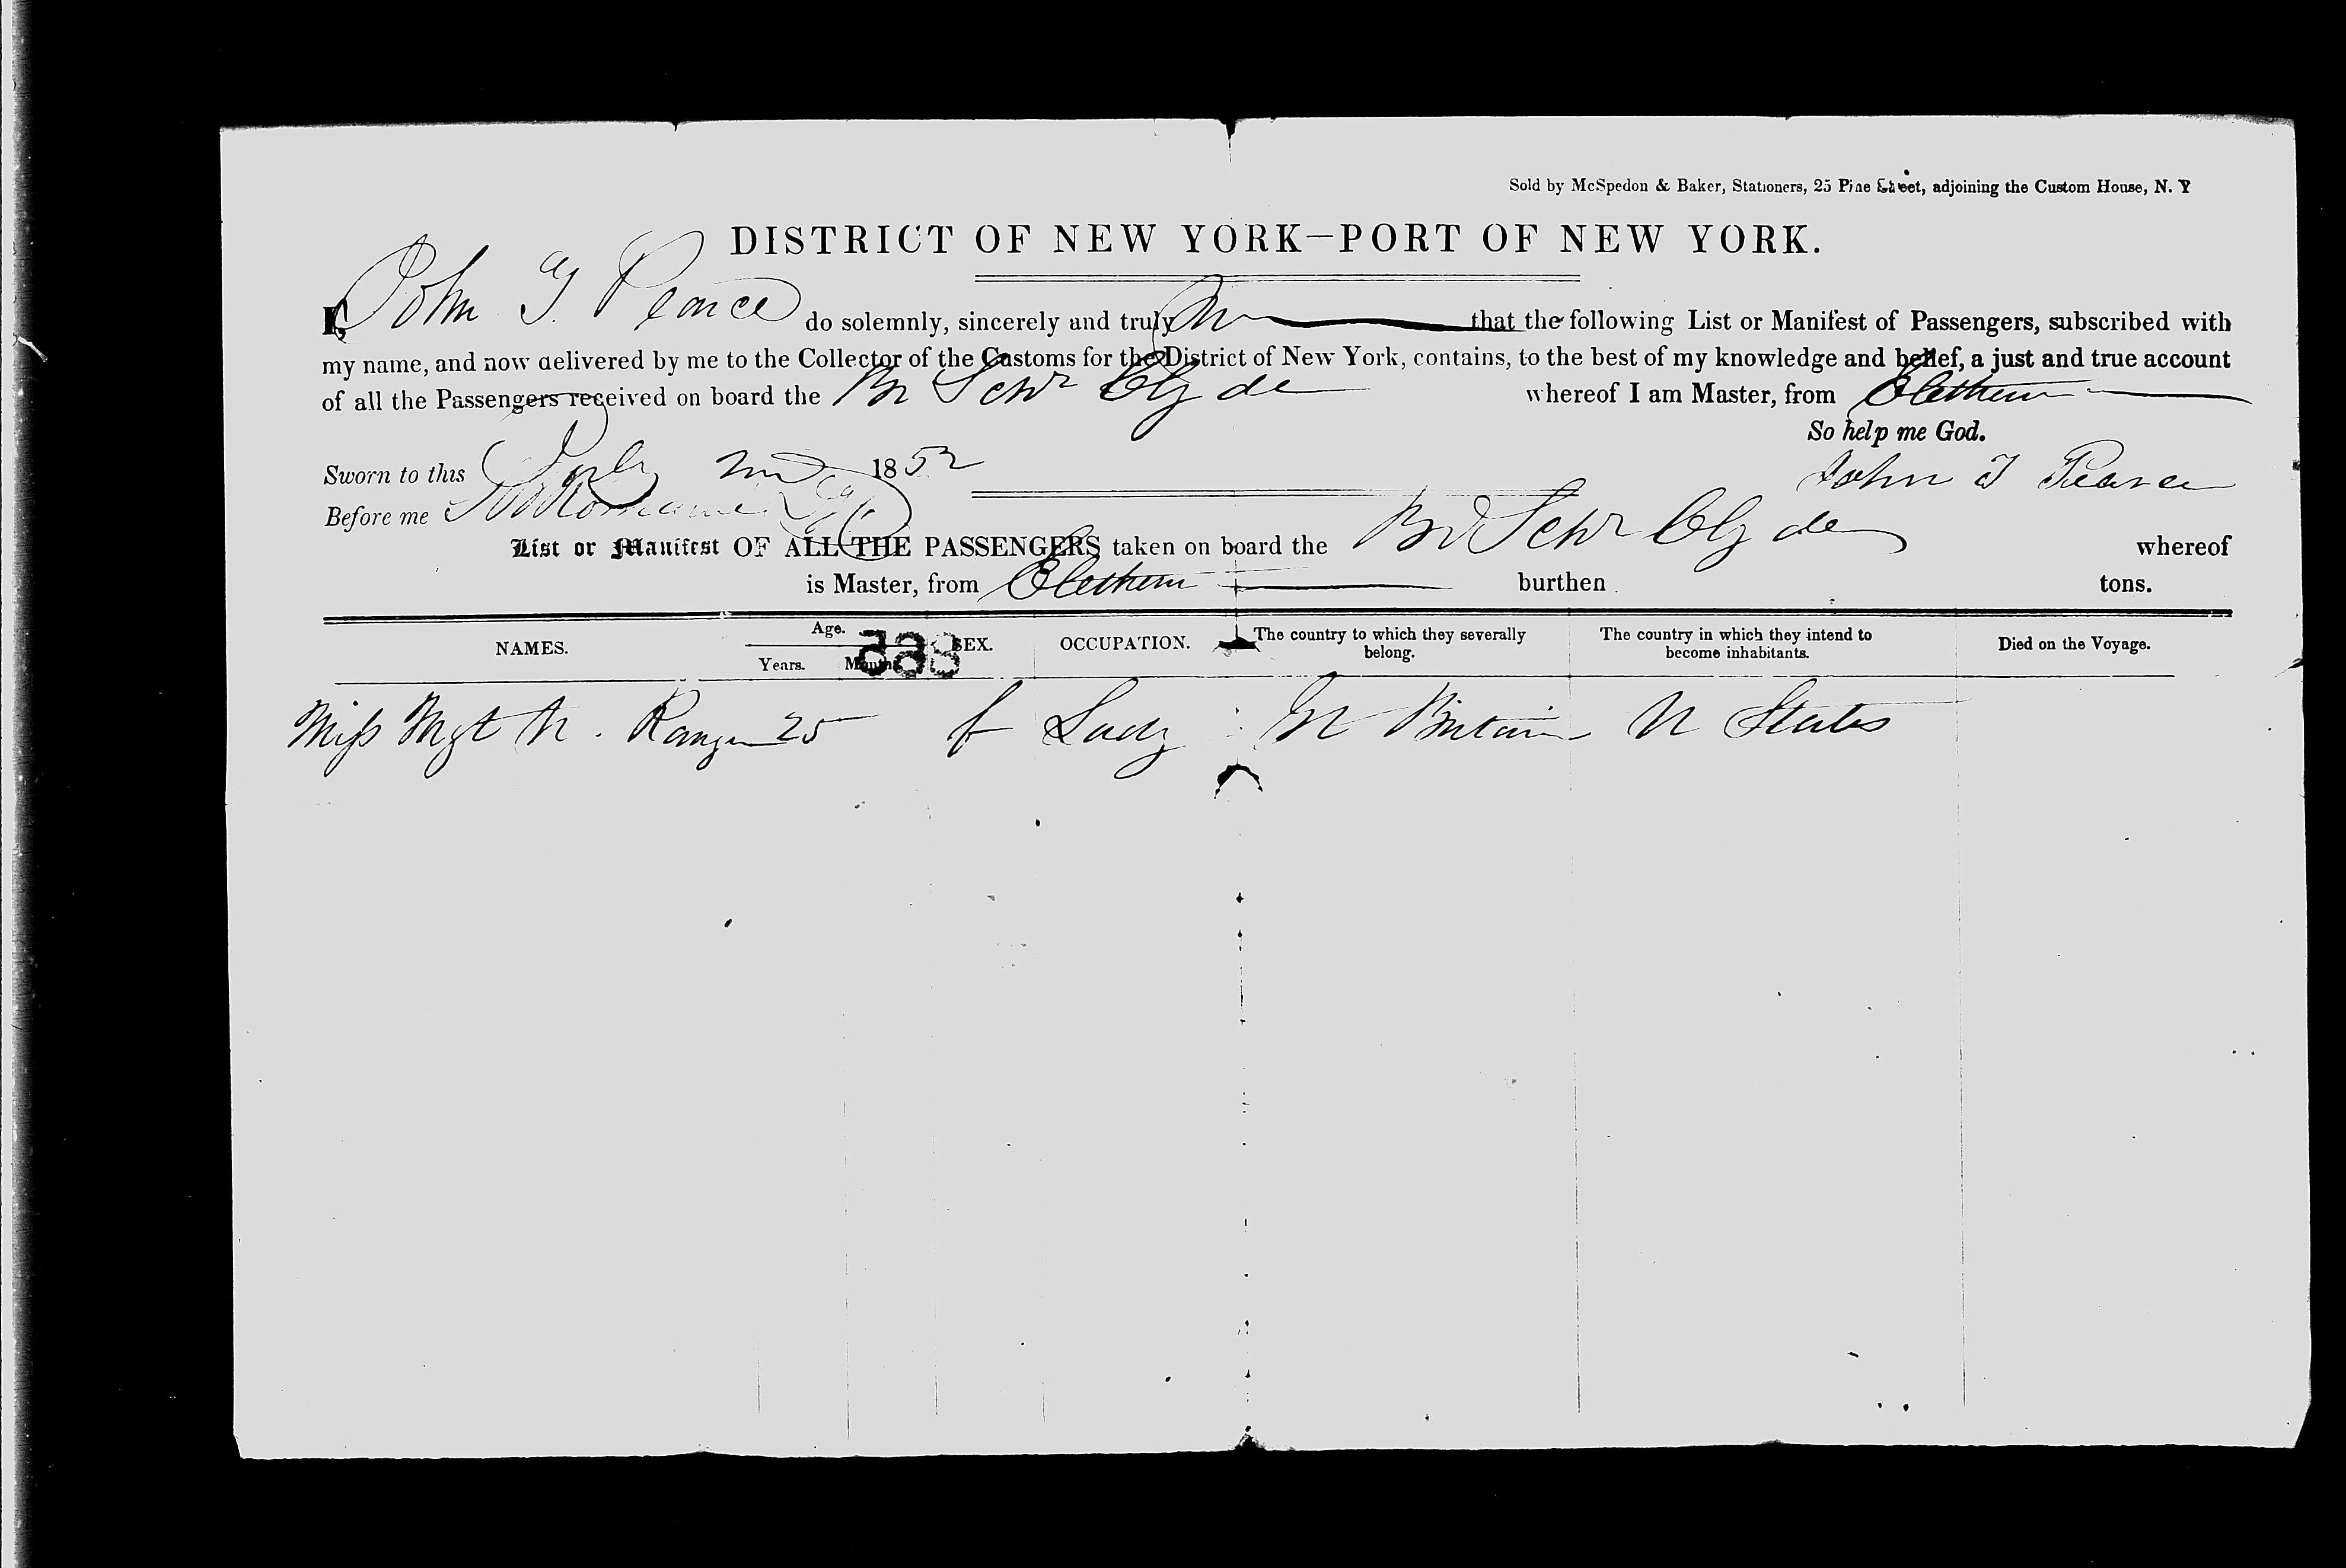 Sold by McSpedon & Baker, Stationers, 25 Pine Street, adjoining the Custom House, N. Y
DISTRICT OF NEW YORK—PORT OF NEW YORK.
I, John T Pearce do solemnly, sincerely and truly that the following List or Manifest of Passengers, subscribed with
my name, and now delivered by me to the Collector of the Customs for the District of New York, contains, to the best of my knowledge and belief, a just and true account
of all the Passengers received on board the Br Schr Clyde whereof I am Master, from Eleuthera
So help me God.
Sworn to this July 1852 John T Pearce
Before me
List or Manifest OF ALL THE PASSENGERS taken on board the Br Schr Clyde whereof
is Master, from Eleuthera burthen tons.
NAMES. Age. Years. Months. SEX. OCCUPATION. The country to which they severally belong. The country in which they intend to become inhabitants. Died on the Voyage.
558
Miss Mgt 25 f Lady Gr Britain U States